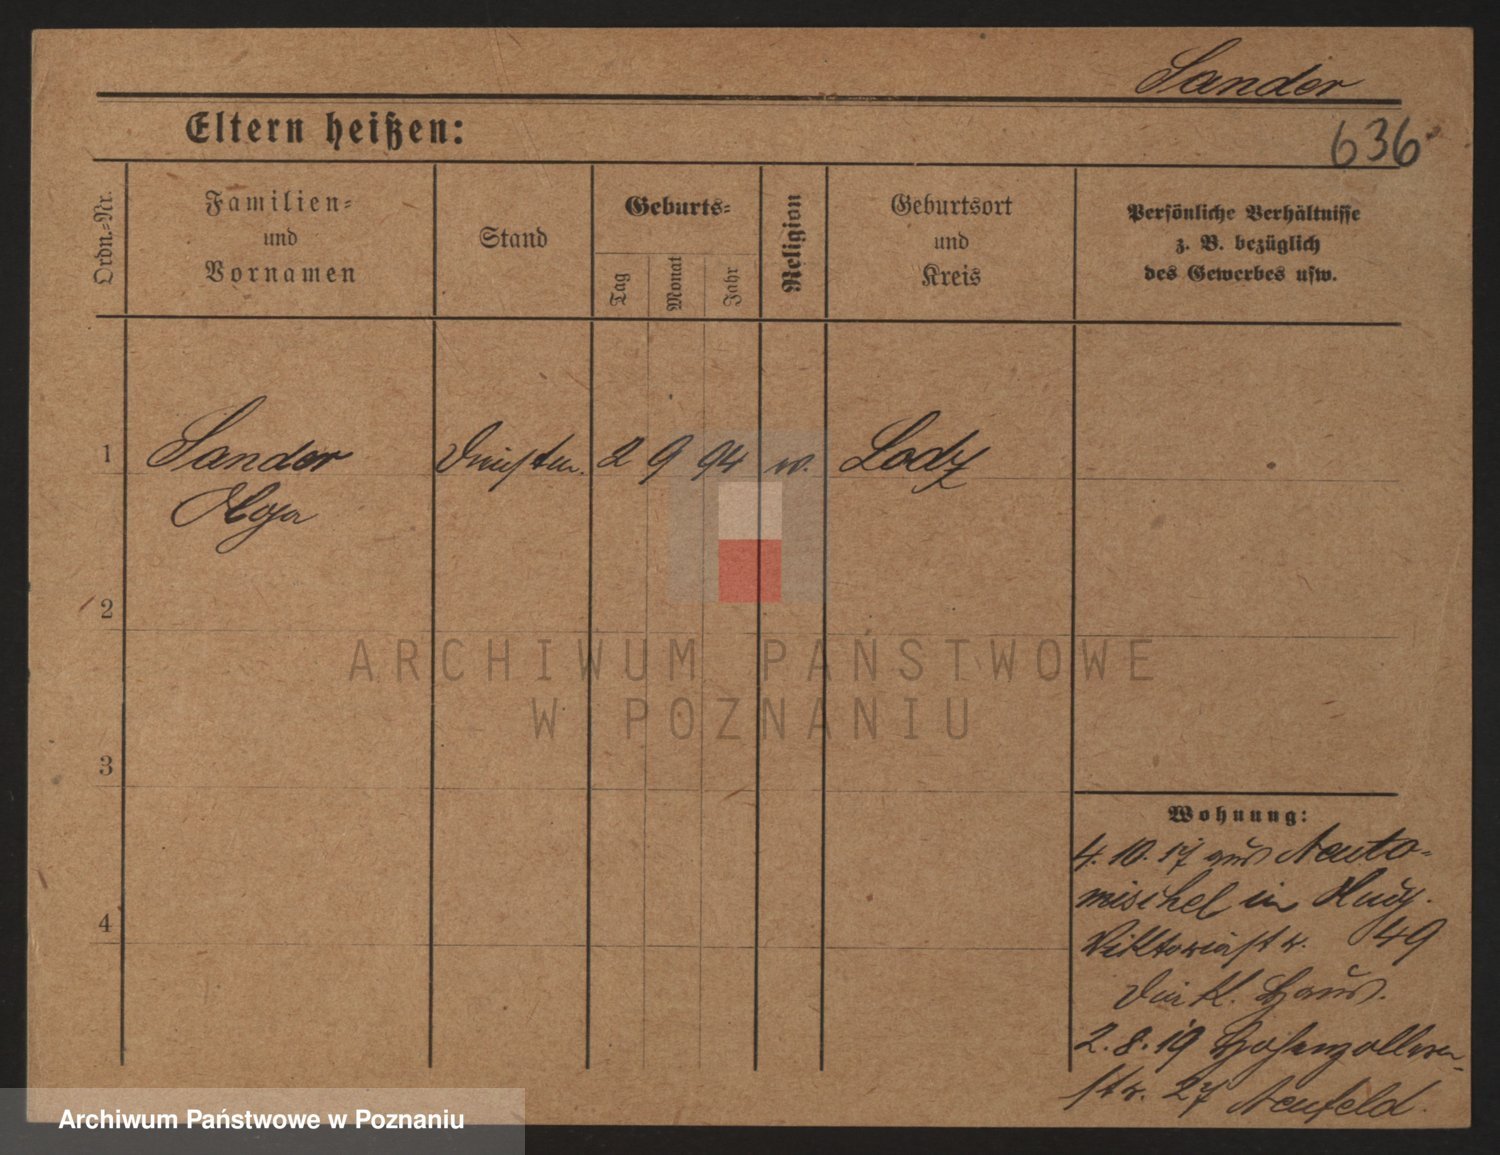 Sander
Eltern heißen:
636
Ordn.-Nr.
Familien-
und
Vornamen
Stand
Geburts-
Tag
Monat
Jahr
Religion
Geburtsort
und
Kreis
Persönliche Verhältnisse
z. B. bezüglich
des Gewerbes usw.
1
Sander
2 9 94
Lodz
2
3
4
Wohnung:
4.10.17 aus Neuto-
mischel in
Viktoriastr. 49
Haus.
2.8.19 Hohenzollern-
str. 27 Neufeld.
ARCHIWUM PAŃSTWOWE
W POZNANIU
Archiwum Państwowe w Poznaniu